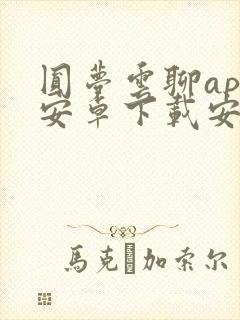 圓夢雲聊ap
安卓下載安
馬克·加索尔